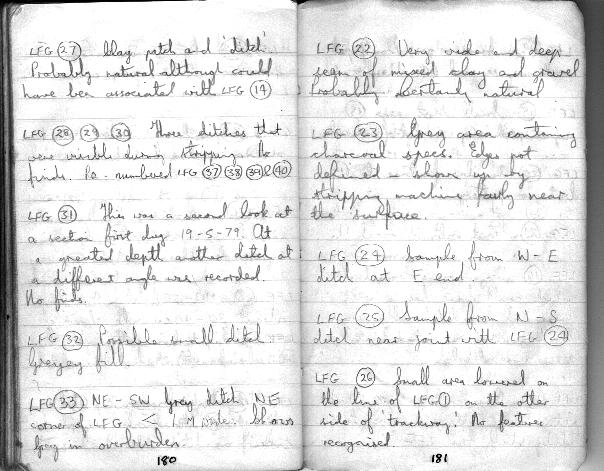 LFG (27) Clay patch and 'ditch'.
Probably natural although could
have been associated with LFG (14)
LFG (28) (29) (30) Three ditches that
were visible during stripping. No
finds. Re-numbered LFG (37) (38) (39) & (40)
LFG (31) This was a second look at
a section first dug 19-5-79. At
a greated depth another ditch at
a different angle was recorded.
No finds.
LFG (32) Possible small ditch
Greyey fill.
LFG (33) NE-SW Grey ditch NE
corner of LFG. < 1 M wide. Shows
Grey in overburden.
180
LFG (22) Very wide and deep
seam of mixed clay and gravel
Probably certainly natural
LFG (23) Grey area containing
charcoal specs. Edges not
defined - shown up by
stripping machine fairly near
the surface.
LFG (24) Sample from W-E
ditch at E end.
LFG (25) Sample from N-S
ditch near joint with LFG (24)
LFG (26) Small area lowered on
the line of LFG (1) on the other
side of 'trackway'. No features
recognised.
181